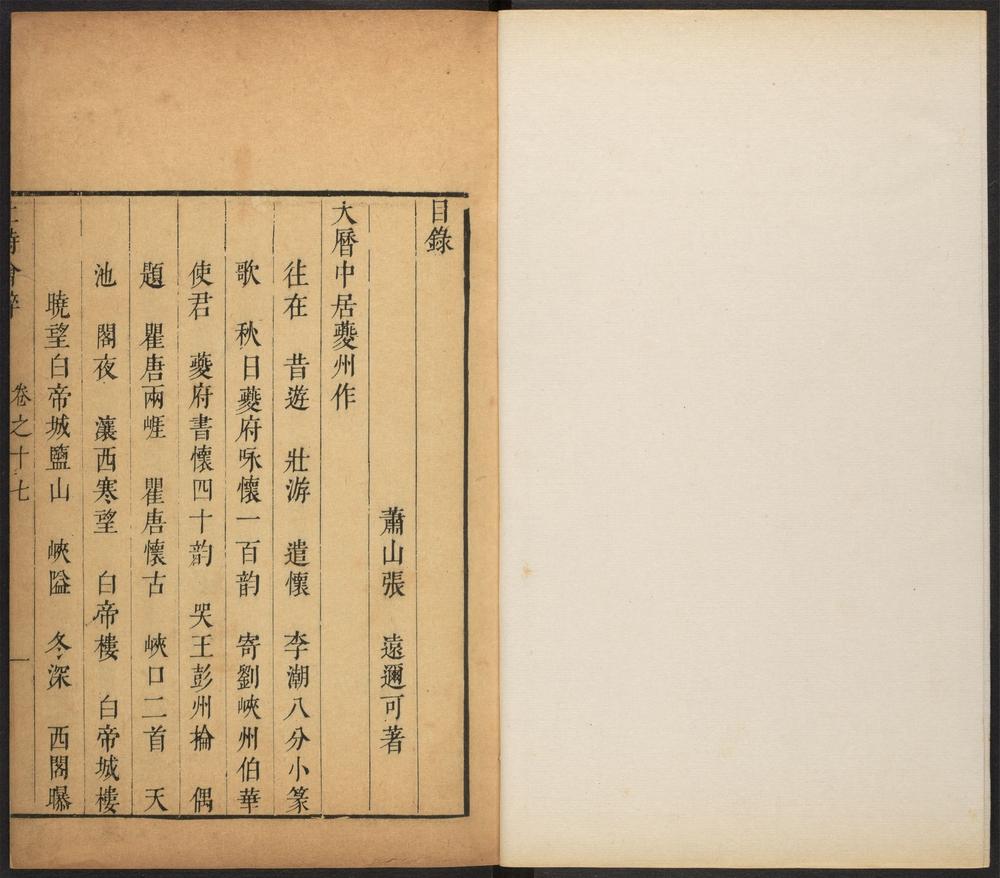 目錄
蕭山張　遠邇可著
大曆中居夔州作
往在　昔遊　壯游　遣懷　李潮八分小篆
歌　秋日夔府咏懷一百韵　寄劉峽州伯華
使君　夔府書懷四十韵　哭王彭州掄　偶
題　瞿唐兩崕　瞿唐懷古　峽口二首　天
池　閣夜　瀼西寒望　白帝樓　白帝城樓
曉望白帝城鹽山　峽隘　冬深　西閣曝
詩會稡　卷之十七　一